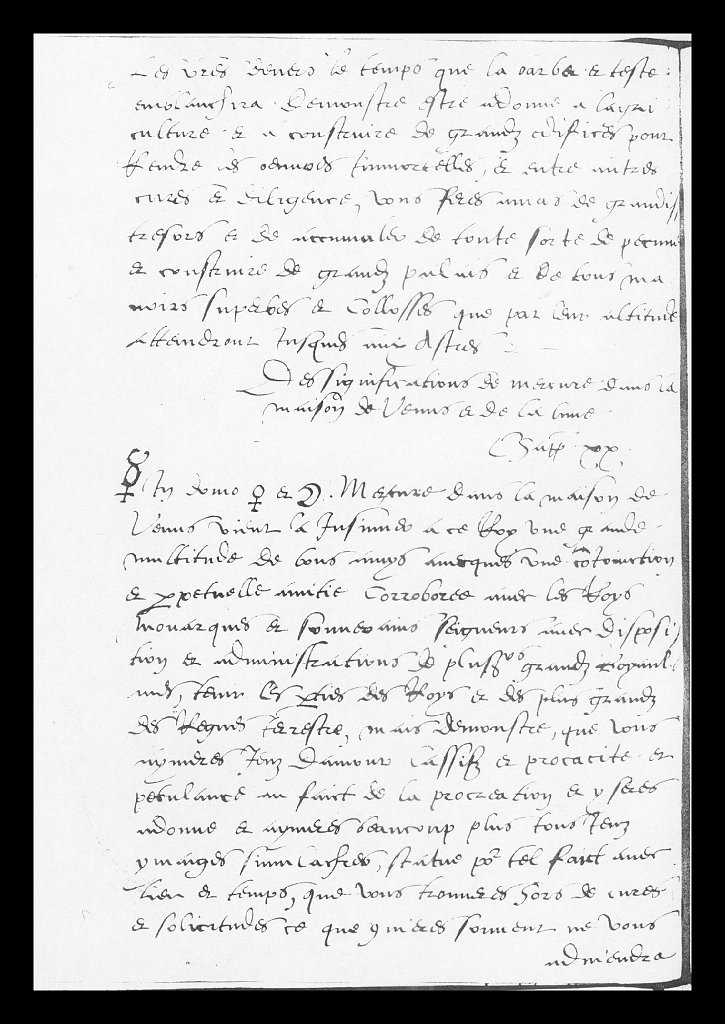 Les vres devers le temps que la barbe et teste
emblanchira. Demonstre estre adonne a lagri
culture et a construire de grandz edifices pour
Rendre ses oeuvres Immortelles, Et entre autres
cures Et diligence, vous feres amas de grandis
tresors et de accumuler de toute sorte de pecune
et construire de grandz palais et de tous ma
noirs superbes et Collosses que par leur altitude
Atteindront Jusques aux Astres
Des significations de mercure dans la
maison de Venus et de la lune
Chapp xx
☿ In domo ♀ et ☽. Mercure dans la maison de
Venus vient la Insinuer a ce Roy une grande
multitude de bons amys avecques une cōIoinction
et ppetuelle amitie Corroboree avec les Roys
monarques et souverains seigneurs avec disposi
tion et administrations de plusrs grandz Royaul
mes, tenir les pties des Roys et des plus grandz
des Regnes terrestre, mais demonstre, que vous
aymeres Jeux damour lassifz et procacite et
petulance au faict de la procreation et y seres
adonne et aymeres beaucoup plus tous Jeux
ymaiges simulachres, statue pr tel faict avec
lieu et temps, que vous trouveres hors de cures
et solicitudes ce que guieres souvent ne vous
adviendra